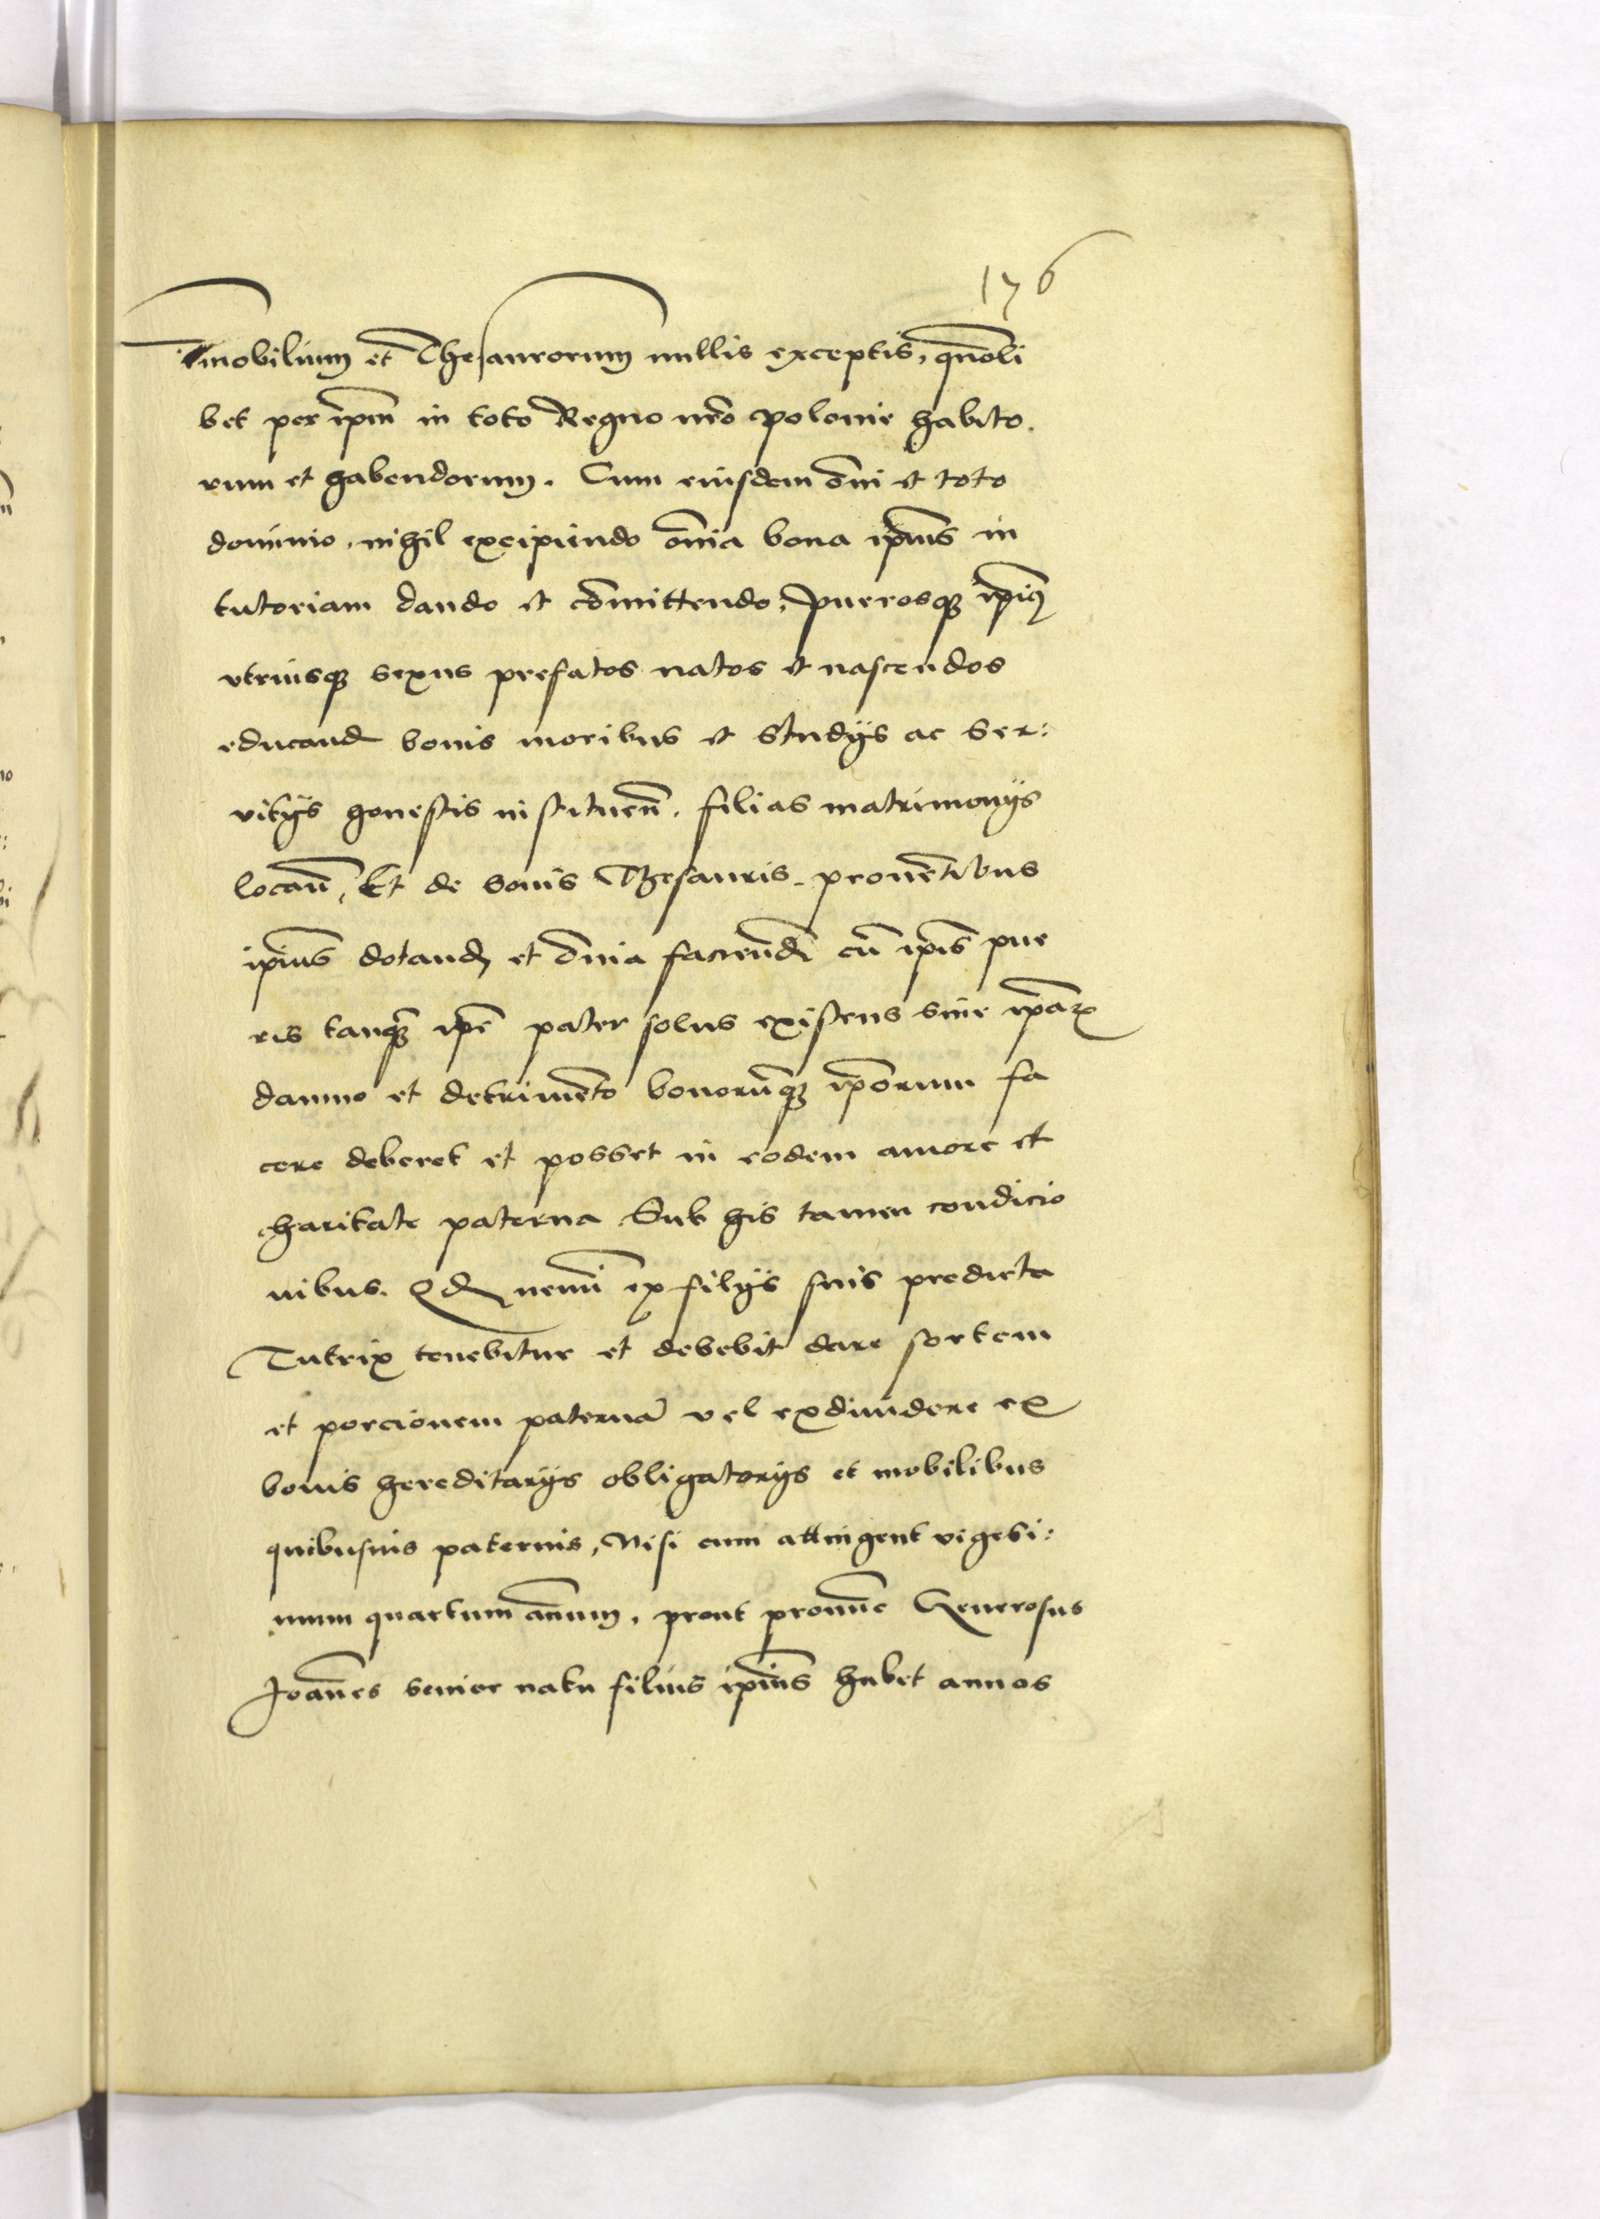 176
Imobilium et Thesaurorum nullis exceptis, quoli
bet per ipm in toto Regno nro Polonie habito.
rum et habendorum. Cum eiusdem omi et toto
dominio, nihil excipiendo omia bona ipius in
tutoriam dando et comittendo, puerosq ipius
vtriusq sexus prefatos natos et nascendos
educand bonis moribus et Studijs ac Ser:
vitijs honestis instituen. filias matrimonijs
locan, Et de bonis Thesauris prouentibus
ipius dotand et omia faciend cu ipis pue
ris tanq ipe pater solus existens sine ipar
damno et detrimento bonoruq ipорum fa
cere deberet et posset in eodem amore et
charitate paterna Sub his tamen condicio
nibus. Qd nemi ex filijs suis predicta
Tutrix tenebitur et debebit dare sortem
et porcionem paterna vel exdiuidere ex
bonis hereditarijs obligatorijs et mobilibus
quibusuis paternis, Nisi cum attingent vigesi:
mum quartum annum, prout pronuc Generosus
Joannes senior natu filius ipius habet annos